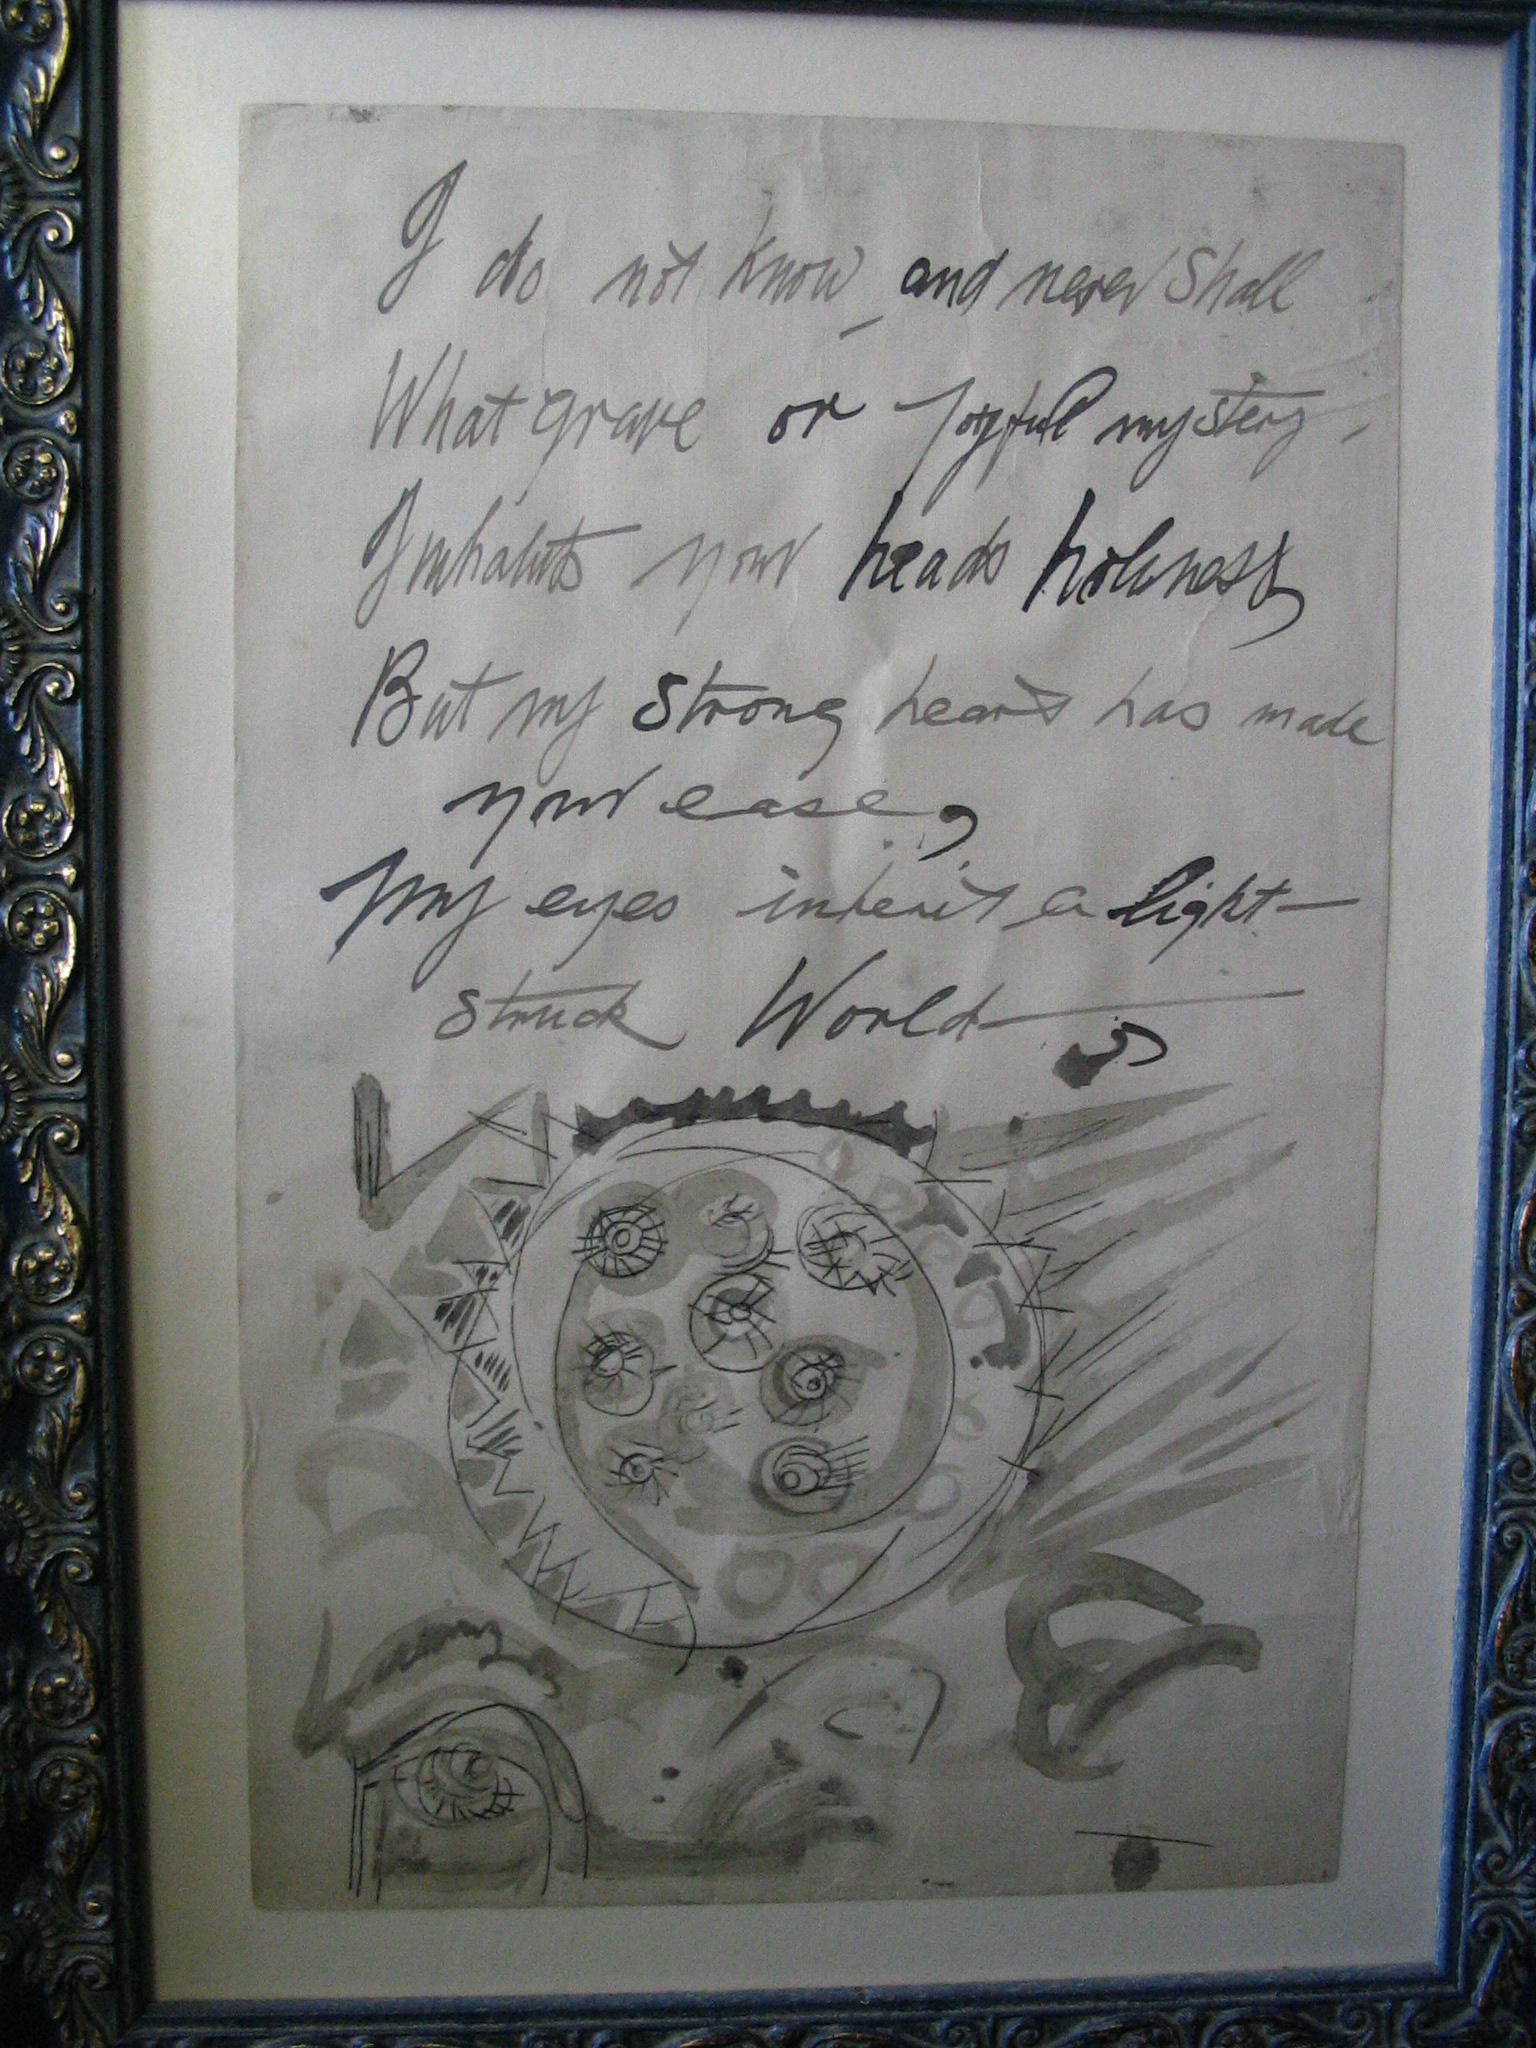 I do not know, and never shall
What grave or joyful mystery,
Inhabits your heads holiness,
But my strong heart has made
your ease,
My eyes inherit a light-
struck World